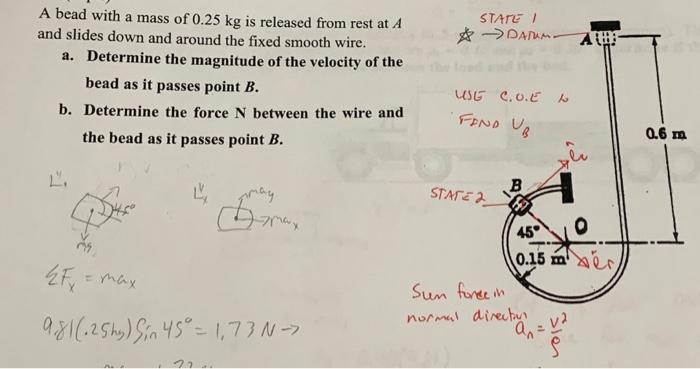 A bead with a mass of 0.25 kg is released from rest at A
and slides down and around the fixed smooth wire.
a. Determine the magnitude of the velocity of the
bead as it passes point B.
b. Determine the force N between the wire and
the bead as it passes point B.
STATE 1
→ DATUM
A
USE C.O.E to
FIND V_B
0.6 m
STATE 2
B
45°
O
0.15 m
êr
Sum force in
normal direction
a_n = V²/ρ
45°
mg
may
max
ΣFx = max
9.81(.25kg) Sin 45° = 1,73 N →